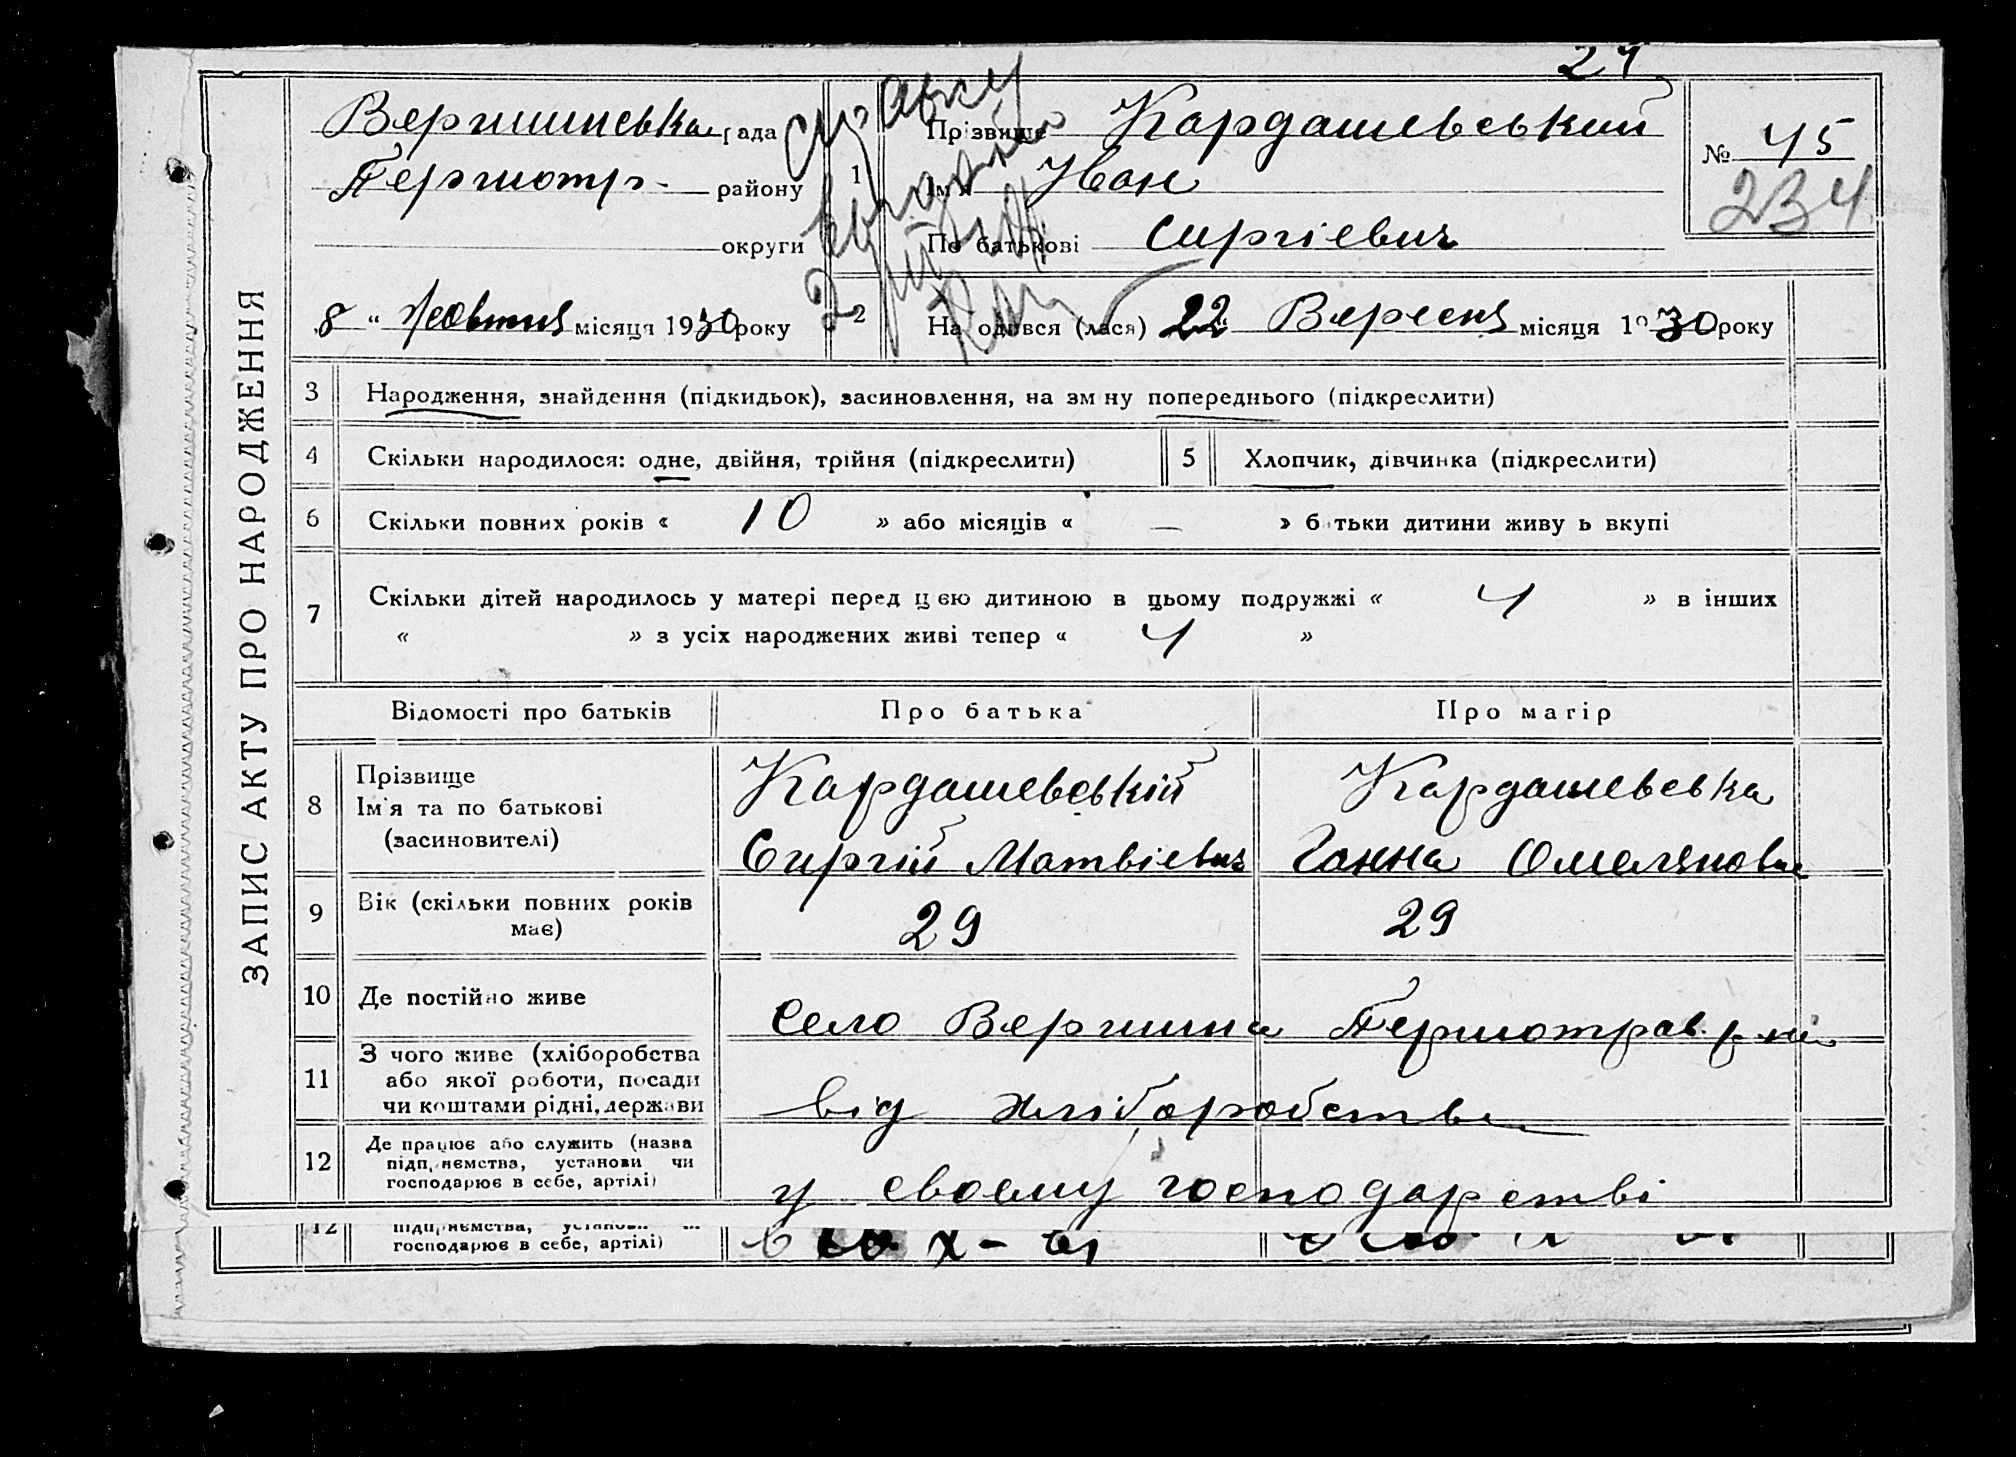 24
ЗАПИС АКТУ ПРО НАРОДЖЕННЯ
Вершинська рада
Першотр. району
округи
8 " Жовтня місяця 1930 року
1
Прізвище Кардашевський
Ім'я Іван
По батькові Сиргіевич
№ 45
234
2
Народився (лася) 22 Вересня місяця 1930 року
3 Народження, знайдення (підкидьок), засиновлення, на зміну попереднього (підкреслити)
4 Скільки народилося: одне, двійня, трійня (підкреслити) 5 Хлопчик, дівчинка (підкреслити)
6 Скільки повних років « 10 » або місяців « — » батьки дитини живуть вкупі
7 Скільки дітей народилось у матері перед цією дитиною в цьому подружжі « 4 » в інших
« » з усіх народжених живі тепер « 4 »
Відомості про батьків Про батька Про матір
8 Прізвище
Ім'я та по батькові
(засновителі)
Кардашевській
Сиргій Матвіевич
Кардашевська
Ганна Омеляновна
9 Вік (скільки повних років
має)
29 29
10 Де постійно живе
село Вершина Першотрав. р-на
11 З чого живе (хліборобства
або якої роботи, посади
чи коштами рідні, держави
від хліборобства
12 Де працює або служить (назва
підприємства, установи чи
господарює в себе, артілі)
у своему господарстві
12 підприємства, установи
господарює в себе, артілі)